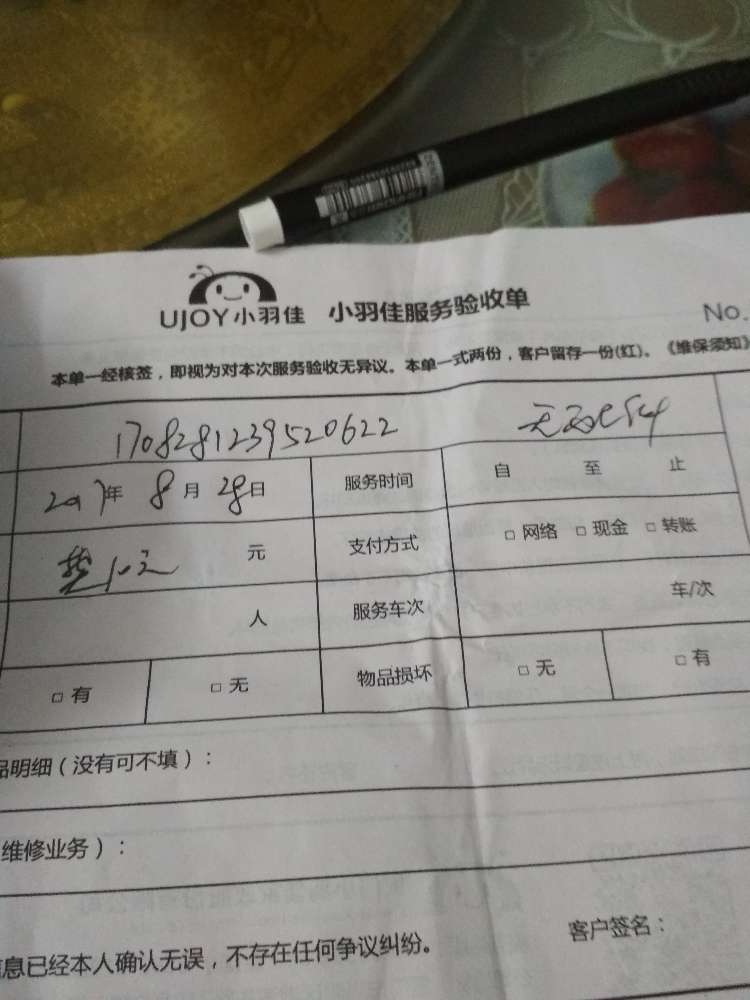 UJOY小羽佳 小羽佳服务验收单
No.
本单一经核签，即视为对本次服务验收无异议。本单一式两份，客户留存一份(红)。《维保须知》
1708281239520622
2017年 8月 28日 服务时间 自 至 止
元 支付方式 □ 网络 □ 现金 □ 转账
人 服务车次 车/次
□ 有 □ 无 物品损坏 □ 无 □ 有
品明细（没有可不填）：
维修业务）：
客户签名：
信息已经本人确认无误，不存在任何争议纠纷。